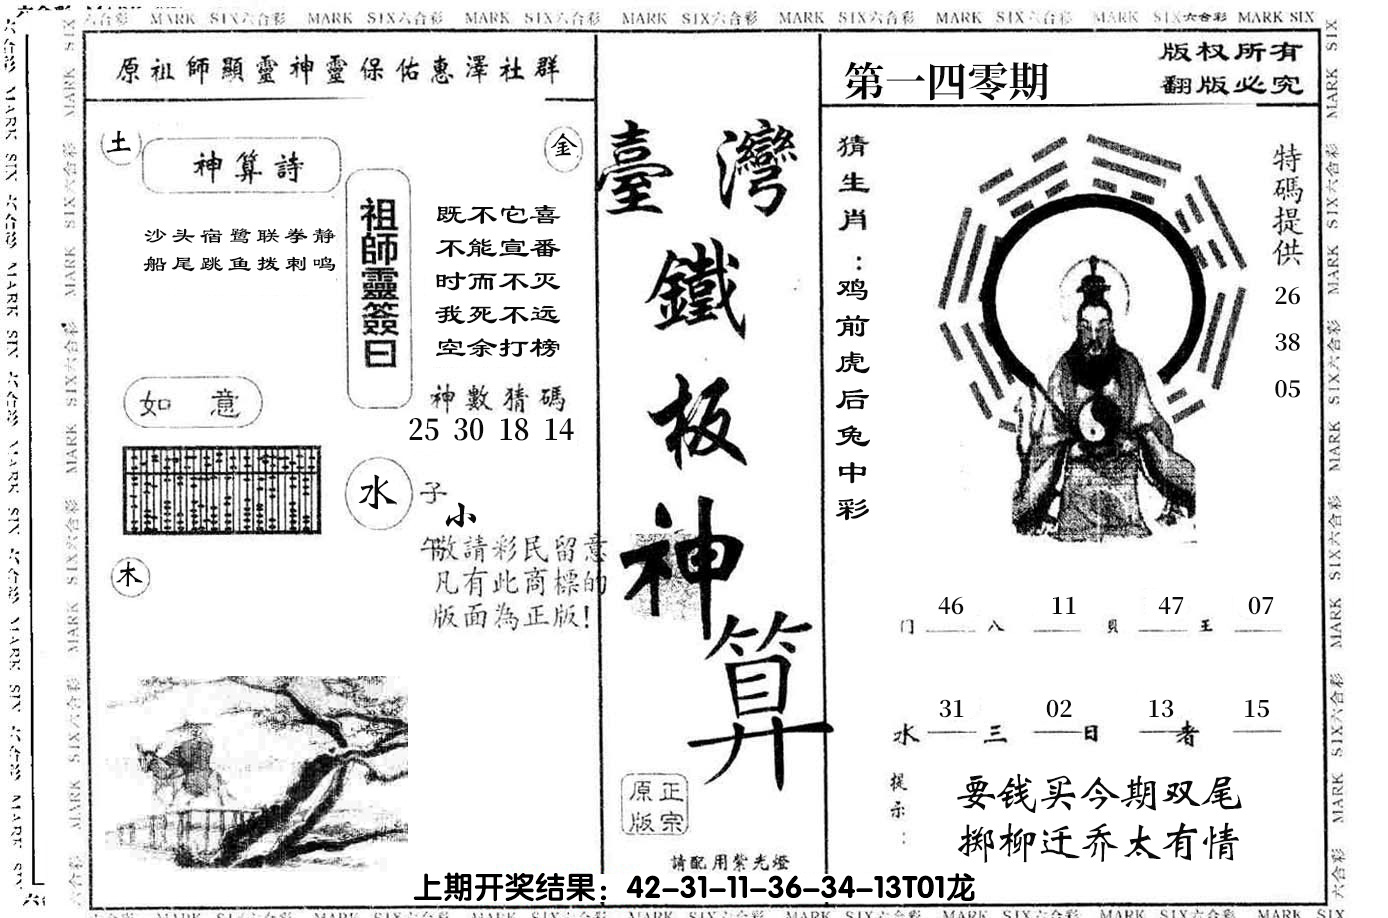 六合彩 MARK SIX六合彩 MARK SIX六合彩 MARK SIX六合彩 MARK SIX六合彩 MARK SIX六合彩 MARK SIX六合彩 MARK SIX六合彩 MARK SIX
原祖師顯靈神靈保佑惠澤社群
土
金
神算詩
沙头宿鹭联拳静
船尾跳鱼拨刺鸣
祖師靈簽曰
既不它喜
不能宣番
时而不灭
我死不远
空余打榜
神數猜碼
25 30 18 14
如意
水
子
小
午
敬請彩民留意
凡有此商標的
版面為正版!
木
臺灣
鐵
板
神
算
正宗
原版
請配用紫光燈
第一四零期
版权所有
翻版必究
猜生肖:鸡前虎后兔中彩
特碼提供
26
38
05
46 11 47 07
门 八 貝 王
31 02 13 15
水 三 日 者
提示:
要钱买今期双尾
掷柳迁乔太有情
上期开奖结果：42-31-11-36-34-13T01龙